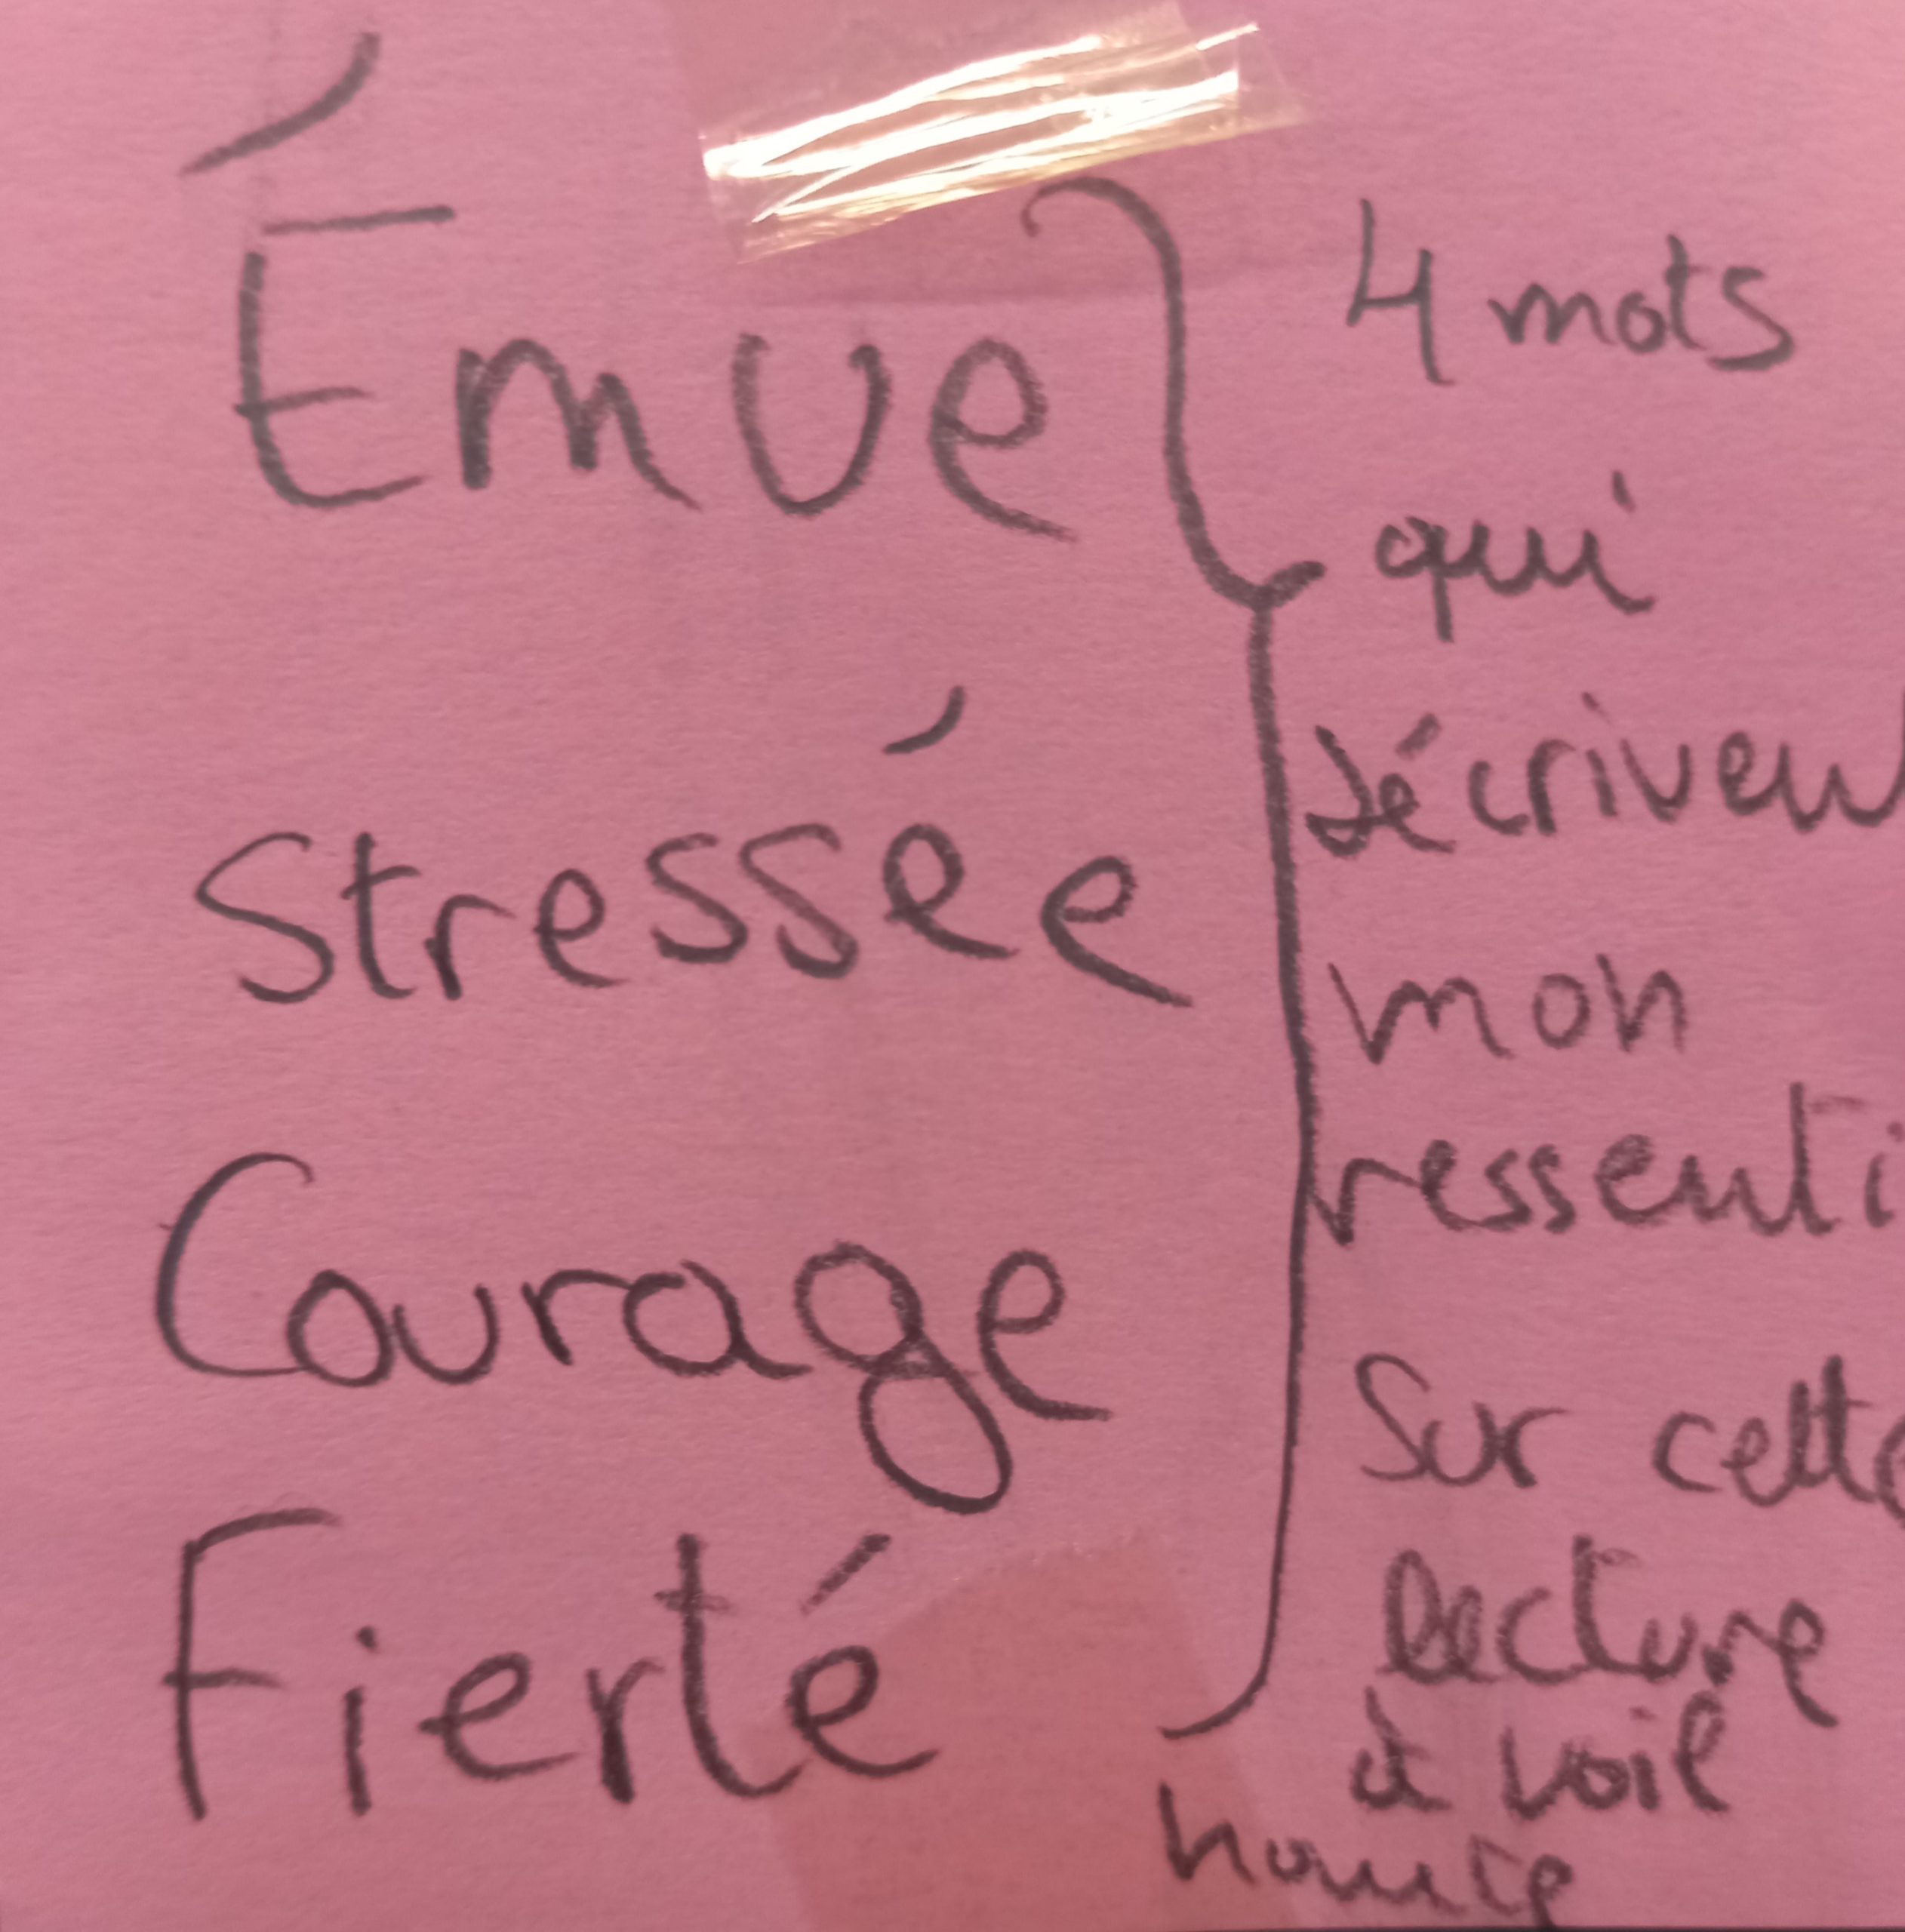 Émue
Stressée
Courage
Fierté
4 mots
qui
décrivent
mon
ressenti
Sur cette
lecture
à voil
haute